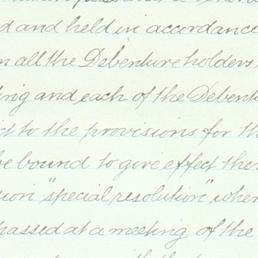 d and held in accordance
n all the Debenture holders
ing and each of the Debent
ct to the provisions for th
be bound to give effect the
ion "special resolution" when
passed at a meeting of the